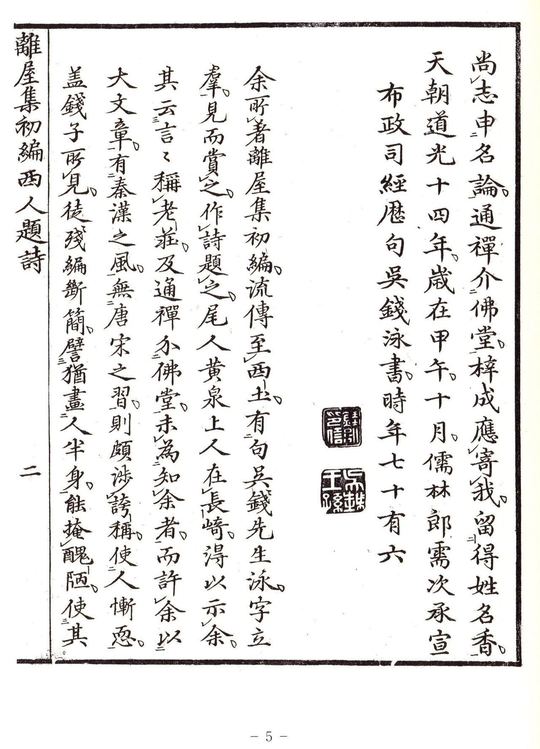 尚志申名論通禪介佛堂梓成應寄我留得姓名香
天朝道光十四年歲在甲午十月儒林郎需次承宣
布政司經歷句吳錢泳書時年七十有六
余所著離屋集初編流傳至西土有句吳錢先生泳字立
羣見而賞之作詩題之尾人黄泉上人在長崎得以示余
其云言〻稱老莊及通禪介佛堂未為知余者而許余以
大文章有秦漢之風無唐宋之習則頗涉誇稱使人慚恧
盖錢子所見徒殘編斷簡譬猶畫人半身能掩醜陋使其
離屋集初編西人題詩
二
- 5 -